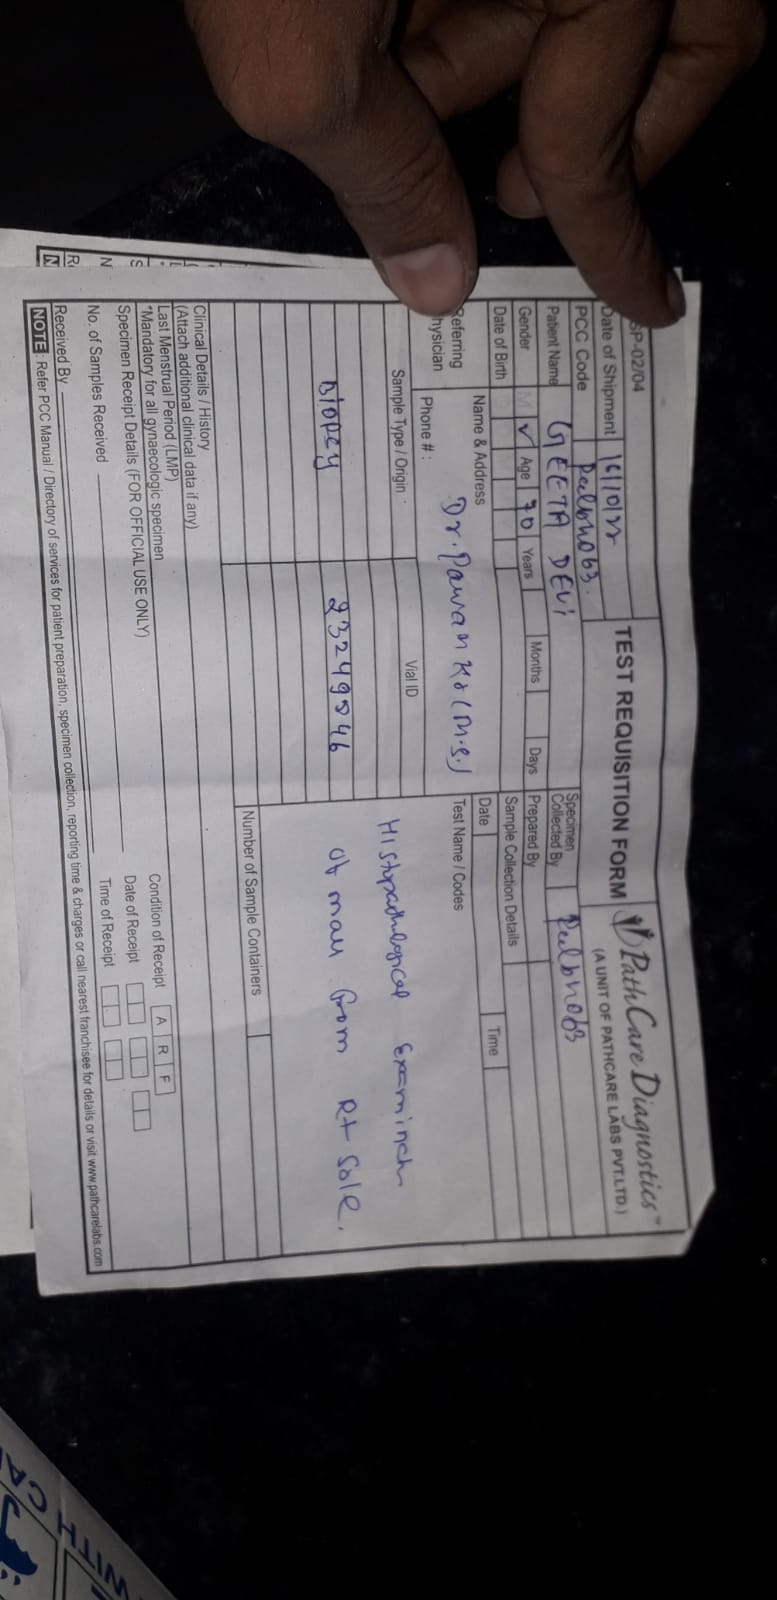 SP-02/04
TEST REQUISITION FORM
PathCare Diagnostics™
(A UNIT OF PATHCARE LABS PVT.LTD.)
Date of Shipment
PCC Code
Patient Name GEETA DEVI
Specimen
Collected By
Gender M ✓ Age 70 Years Months Days
Prepared By
Date of Birth
Sample Collection Details
Date Time
Referring
Physician
Name & Address
Dr. Pawan Kr (M.S.)
Phone # :
Test Name / Codes
Sample Type / Origin
Vial ID
Histopathological
Biopsy
of mass from Rt Sole.
Number of Sample Containers
Clinical Details / History
(Attach additional clinical data if any)
Last Menstrual Period (LMP)
*Mandatory for all gynaecologic specimen
Specimen Receipt Details (FOR OFFICIAL USE ONLY)
Condition of Receipt A R F
Date of Receipt
No. of Samples Received
Time of Receipt
Received By
NOTE : Refer PCC Manual / Directory of services for patient preparation, specimen collection, reporting time & charges or call nearest franchisee for details or visit www.pathcarelabs.com
WITH CA